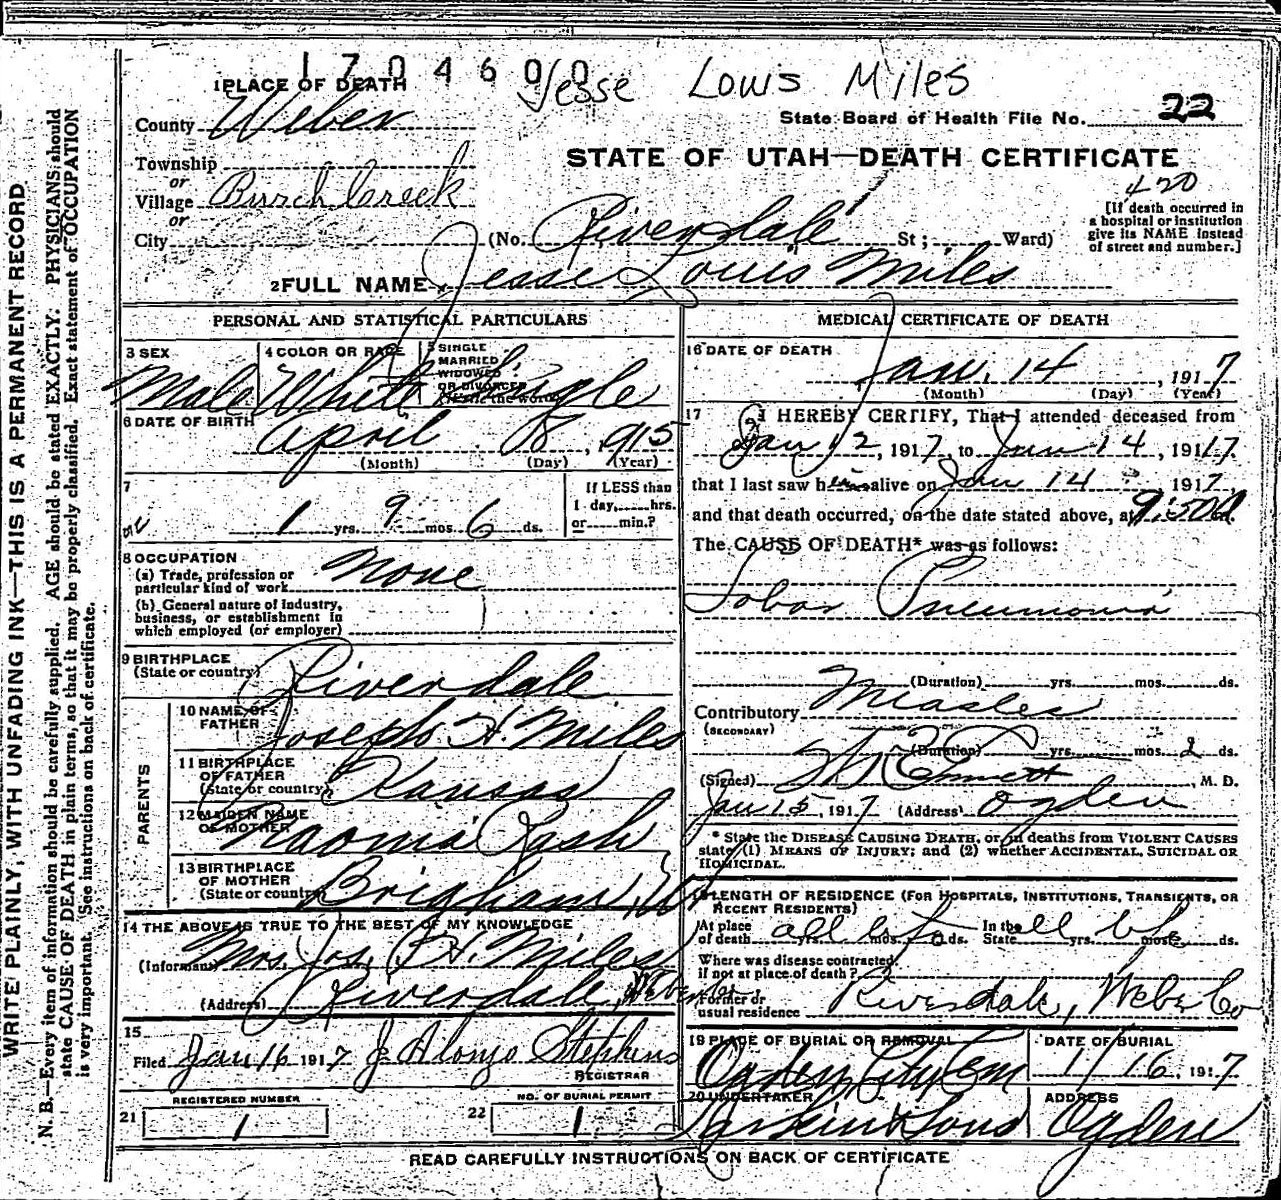 1704600
Jesse Louis Miles
1 PLACE OF DEATH
County Weber
State Board of Health File No. 22
STATE OF UTAH—DEATH CERTIFICATE
Township
or
Village Burch Creek
or
City
(No. Riverdale St; Ward)
420
[If death occurred in
a hospital or institution
give its NAME instead
of street and number.]
2 FULL NAME Jesse Louis Miles
PERSONAL AND STATISTICAL PARTICULARS
3 SEX
Male
4 COLOR OR RACE
White
5 SINGLE
MARRIED
WIDOWED
OR DIVORCED
Single
6 DATE OF BIRTH
April 8, 1915
(Month) (Day) (Year)
7
1 yrs. 9 mos. 6 ds.
If LESS than
1 day, hrs.
or min.?
8 OCCUPATION
(a) Trade, profession or
particular kind of work None
(b) General nature of industry,
business, or establishment in
which employed (or employer)
9 BIRTHPLACE
(State or country) Riverdale
PARENTS
10 NAME OF
FATHER Joseph H. Miles
11 BIRTHPLACE
OF FATHER
(State or country) Kansas
12 MAIDEN NAME
OF MOTHER Naomi
13 BIRTHPLACE
OF MOTHER
(State or country) Brigham, Ut
14 THE ABOVE IS TRUE TO THE BEST OF MY KNOWLEDGE
(Informant) Mrs. Jos. H. Miles
(Address) Riverdale, Weber
15
Filed Jan 16 1917 J Alonzo Stephens
REGISTRAR
REGISTERED NUMBER
21 1
NO. OF BURIAL PERMIT
22 1
MEDICAL CERTIFICATE OF DEATH
16 DATE OF DEATH
Jan. 14, 1917
(Month) (Day) (Year)
17 I HEREBY CERTIFY, That I attended deceased from
Jan 12, 1917, to Jan 14, 1917.
that I last saw him alive on Jan 14 1917
and that death occurred, on the date stated above, at
The CAUSE OF DEATH* was as follows:
Lobar Pneumonia
(Duration) yrs. mos. ds.
Contributory Measles
(SECONDARY)
(Duration) yrs. mos. 2 ds.
(Signed) Emmett M. D.
Jan 15, 1917 (Address) Ogden
* State the DISEASE CAUSING DEATH, or, in deaths from VIOLENT CAUSES
state (1) MEANS OF INJURY; and (2) whether ACCIDENTAL, SUICIDAL OR
HOMICIDAL.
18 LENGTH OF RESIDENCE (FOR HOSPITALS, INSTITUTIONS, TRANSIENTS, OR
RECENT RESIDENTS)
At place
of death all life yrs. mos. ds. In the
State all life yrs. mos. ds.
Where was disease contracted,
if not at place of death?
Former or
usual residence Riverdale, Weber Co
19 PLACE OF BURIAL OR REMOVAL
Ogden City Cem
DATE OF BURIAL
1/16, 1917
20 UNDERTAKER
Larkin & Sons
ADDRESS
Ogden
READ CAREFULLY INSTRUCTIONS ON BACK OF CERTIFICATE
WRITE PLAINLY, WITH UNFADING INK—THIS IS A PERMANENT RECORD
N. B.—Every item of information should be carefully supplied. AGE should be stated EXACTLY. PHYSICIANS should
state CAUSE OF DEATH in plain terms, so that it may be properly classified. Exact statement of OCCUPATION
is very important. (See instructions on back of certificate.